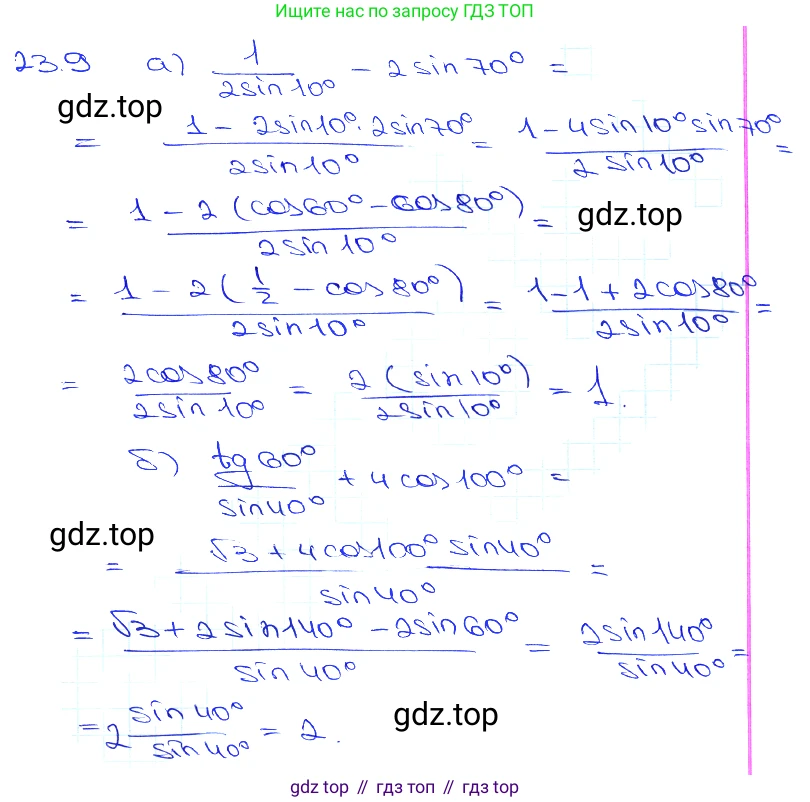 Ищите нас по запросу ГДЗ ТОП
23.9 а) 1/(2sin10°) − 2sin70° =
gdz.top
= (1 − 2sin10°·2sin70°)/(2sin10°) = (1 − 4sin10°sin70°)/(2sin10°) =
= (1 − 2(cos60° − cos80°))/(2sin10°) =
gdz.top
= (1 − 2(1/2 − cos80°))/(2sin10°) = (1 − 1 + 2cos80°)/(2sin10°) =
= 2cos80°/(2sin10°) = 2(sin10°)/(2sin10°) = 1.
б) tg60°/sin40° + 4cos100° =
gdz.top
= (√3 + 4cos100° sin40°)/(sin40°) =
= (√3 + 2sin140° − 2sin60°)/(sin40°) = 2sin140°/sin40° =
= 2 sin40°/sin40° = 2.
gdz.top
gdz top // гдз топ // gdz top